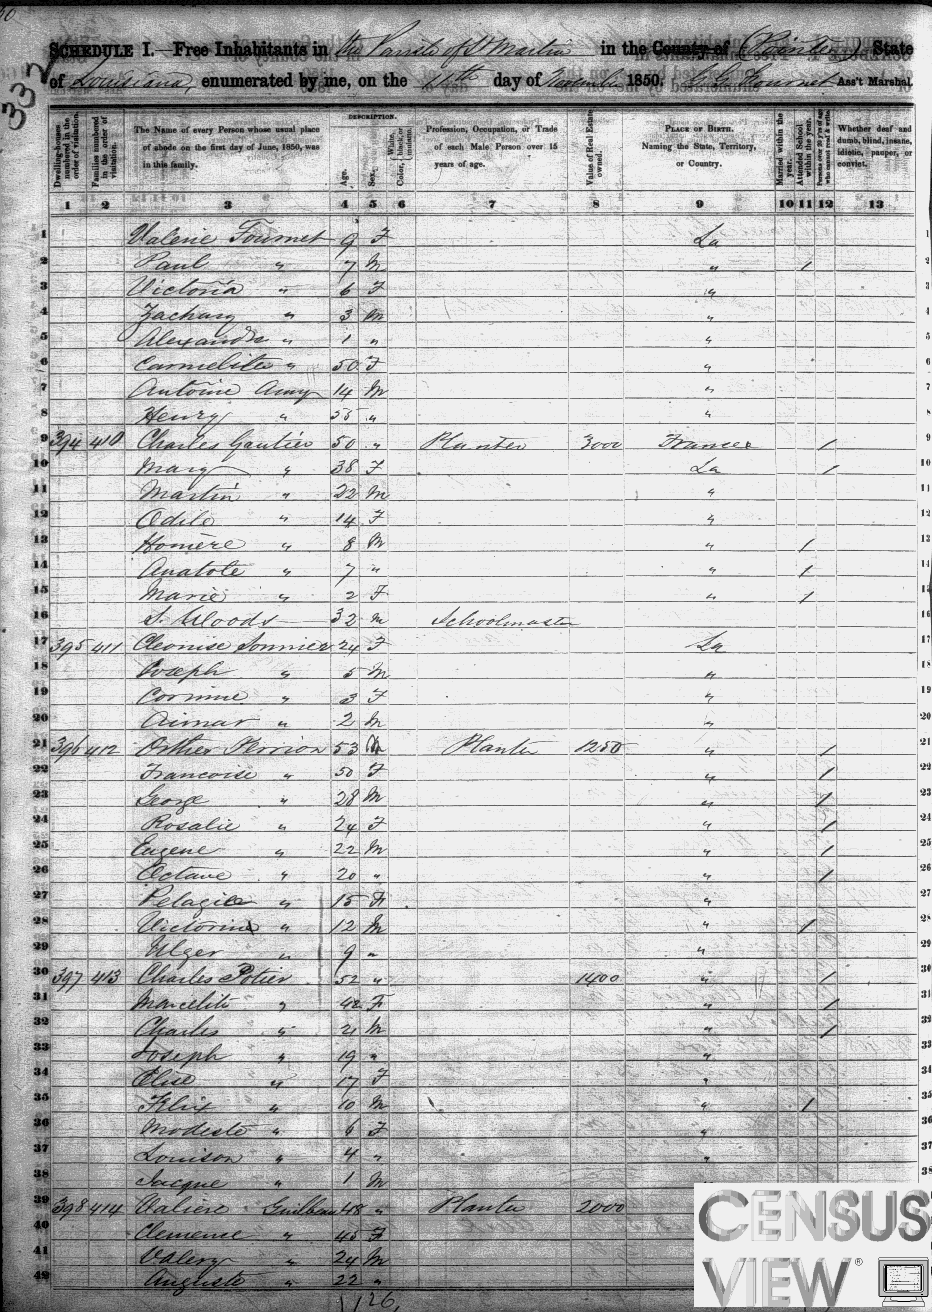 SCHEDULE I.—Free Inhabitants in the Parish of St Martin in the County of State
of Louisiana, enumerated by me, on the 11th day of 1850. Ass't Marshal.
332
Dwelling-houses numbered in the order of visitation.
Families numbered in the order of visitation.
The Name of every Person whose usual place of abode on the first day of June, 1850, was in this family.
DESCRIPTION.
Age.
Sex.
White, black, or mulatto.
Color,
Profession, Occupation, or Trade of each Male Person over 15 years of age.
Value of Real Estate owned.
PLACE OF BIRTH.
Naming the State, Territory, or Country.
Married within the year.
Attended School within the year.
Persons over 20 y'rs of age who cannot read & write.
Whether deaf and dumb, blind, insane, idiotic, pauper, or convict.
1 2 3 4 5 6 7 8 9 10 11 12 13
1 Valerie Fournet 9 F La 1
2 Paul " 7 M " / 2
3 Victoria " 6 F " 3
4 Zachary " 3 M " 4
5 Alexandre " 1 " " 5
6 Carmelite " 50 F " 6
7 Antoine 14 M " 7
8 Henry " 55 " " 8
9 394 410 Charles Gautier 50 " Planter 3000 France / 9
10 Mary " 38 F La / 10
11 Martin " 22 M " 11
12 Odile " 14 F " 12
13 Homère " 8 M " / 13
14 Anatole " 7 " " / 14
15 Marie " 2 F " / 15
16 S. Woods 32 m Schoolmaster 16
17 395 411 Cleonise Sonnier 24 F La 17
18 Joseph " 5 M " 18
19 Corinne " 3 F " 19
20 Aimar " 2 M " 20
21 396 412 53 M Planter 1250 " / 21
22 Francoise " 50 F " / 22
23 George " 28 M " / 23
24 Rosalie " 24 F " / 24
25 Eugene " 22 M " / 25
26 Octave " 20 " " / 26
27 Pelagie " 15 F " 27
28 Victorin " 12 M " / 28
29 Ulger " 9 " " 29
30 397 413 Charles Potier 52 " 1400 " / 30
31 Marcelite " 42 F " / 31
32 Charles " 21 M " / 32
33 Joseph " 19 " " 33
34 Elise " 17 F " 34
35 Felix " 10 M " / 35
36 Modeste " 6 F " 36
37 Louison " 4 " " 37
38 Jacque " 1 M 38
39 398 414 Valière Guilbeau 48 " Planter 2000
40 Clemence " 45 F
41 Valery " 24 M
42 Auguste " 22 "
1126
CENSUS
VIEW®